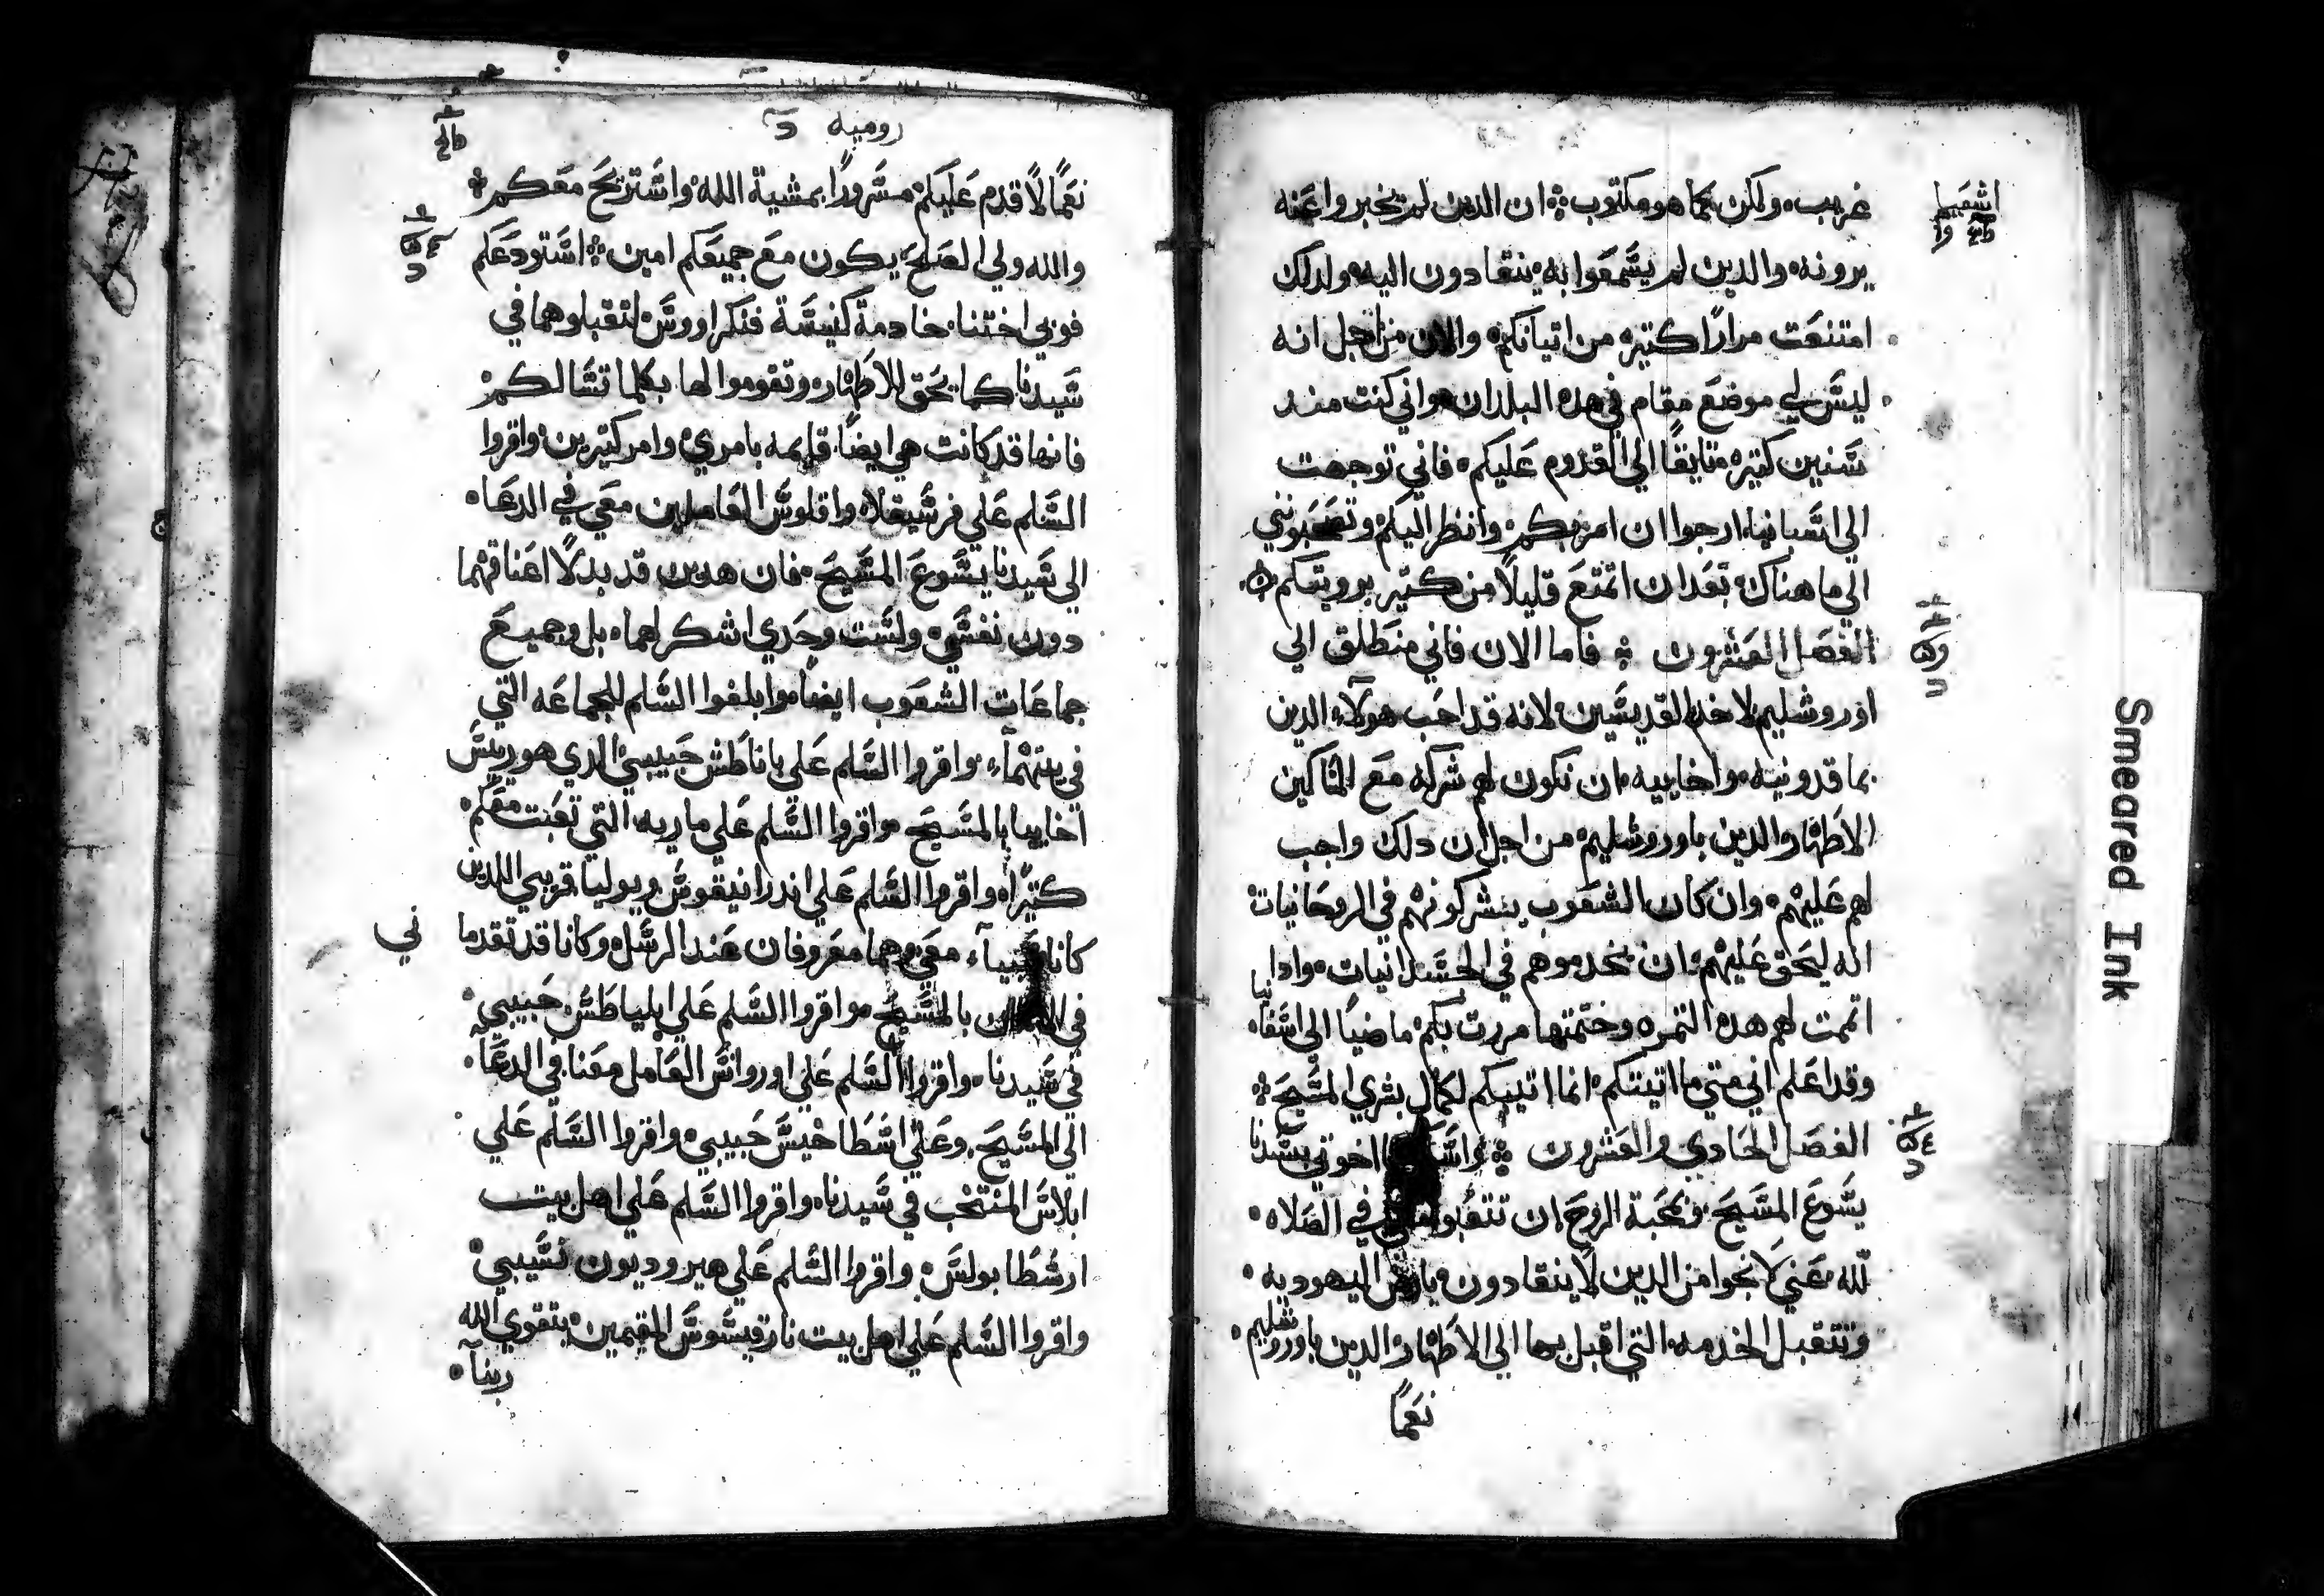 غريب، ولكن كما هو مكتوب ان الدين لم يخبروا عنه
يرونه والدين لم يسمعوا به ينقادون اليه ولدلك
امتنعت مرارًا كتيره من اتيانكم والان من اجل انه
ليس لي موضع مقام في هده البلدان واني كنت مند
سنين كتيره تايقًا الي القدوم عليكم فاني توجهت
الي اسبانيا ارجوا ان امر بكم وانظر اليكم وتصحبونني
الي ما هناك بعد ان اتمتع قليلًا من كتير برويتكم
الفصل العشرون فاما الان فاني منطلق الي
اوروشليم لاخدم القديسين لانه قد احب هولاء الدين
بماقدونيه واخاييه ان تكون لهم شركه مع المساكين
الاطهار الدين باوروشليم من اجل ان دلك واجب
لهم عليهم وان كان الشعوب يشركونهم في الروحانيات
انه ليحق عليهم ان يخدموهم في الجسدانيات وادا
اتممت لهم هده التمره وختمتها مررت بكم ماضيًا الي اسفانيا
وقد اعلم اني متي ما اتيتكم انما اتيكم لكمال بشري المسيح
الفصل الحادي والعشرون اخوتي بسيدنا
يسوع المسيح وبمحبة الروح ان في الصلاه
لله عني لانجوا من الدين لا ينقادون اليهوديه
وتتقبل الخدمه التي اقبل بها الي الاطهار الدين باوروشليم
نعمًا
اشعيا
روميه
نعمًا لاقدم عليكم مسرورًا بمشية الله واستريح معكم
والله ولي الصلح يكون مع جميعكم امين استودعكم
فوبي اختنا خادمة كنيسة قنكراووس لتقبلوها في
سيدنا كما يحق للاطهار وتقوموا لها بكلما تسالكم
فانها قد كانت هي ايضًا قايمه بامري وامر كتيرين واقروا
السلم علي فرسيقلا واقلوس العاملين معي في الدعا
الي سيدنا يسوع المسيح فان هدين قد بدلا اعناقهما
دون نفسي ولست وحدي اشكر لهما بل وجميع
جماعات الشعوب ايضًا وابلغوا السلم للجماعه التي
في بيتهماء واقروا السلم علي باناطس حبيبي الدي هو ريس
اخاييا بالمسيح واقروا السلم علي ماريه التي تعبت معكم
كتيرًا واقروا السلم علي اندرانيقوس ويوليا قريبي اللدين
كانا معي وهما معروفان عند الرسل وكانا قد تقدماني
في بالمسيح واقروا السلم علي ابلياطس حبيبي
في سيدنا واقروا السلم علي اوروانس العامل معنا في الدعآ
الي المسيح وعلي اسطاخيس حبيبي واقروا السلم علي
ابلاس المنتخب في سيدنا واقروا السلم علي اهل بيت
ارسطابولس واقروا السلم علي هيروديون نسيبي
واقروا السلم علي اهل بيت نارقيسوس المقيمين بتقوي الله
ربنآ
Smeared Ink